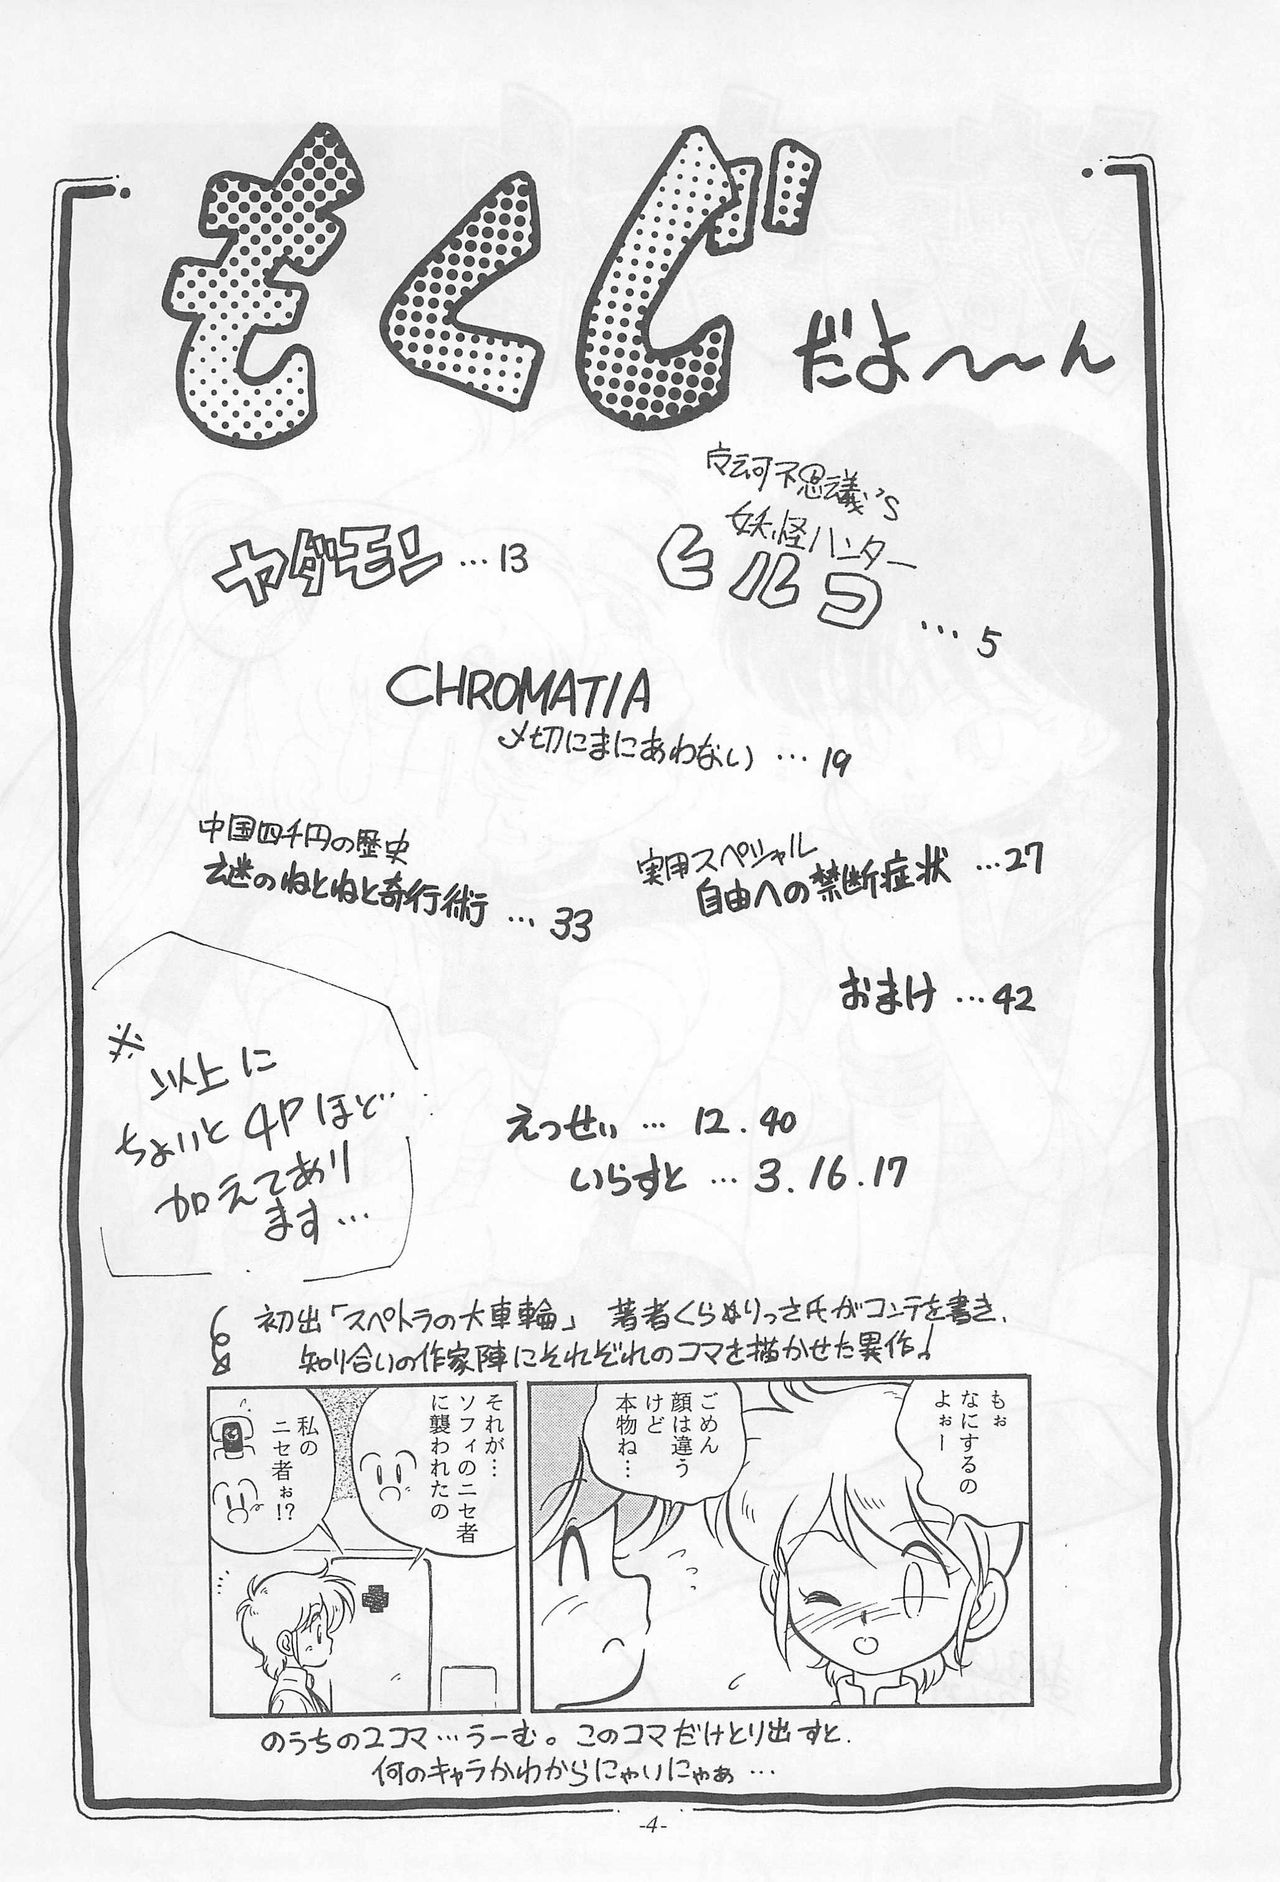 もくじ だよ〜〜ん
妖怪ハンター
ヒルコ …5
ヤダモン …13
CHROMATIA
〆切にまにあわない …19
実用スペシャル
自由への禁断症状 …27
中国四千円の歴史
謎のねとねと奇行術 …33
おまけ …42
※以上に
ちょいと4Pほど
加えてあり
ます…
えっせぃ … 12.40
いらすと … 3.16.17
初出「スペトラの大車輪」 著者くらぬりっさ氏がコンテを書き、
知り合いの作家陣にそれぞれのコマを描かせた異作!
もぉ
なにするの
よぉー
ごめん
顔は違う
けど
本物ね…
それが…
ソフィのニセ者
に襲われたの
私の
ニセ者ぉ!?
のうちの2コマ…うーむ。このコマだけとり出すと、
何のキャラかわからにゃいにゃぁ…
-4-